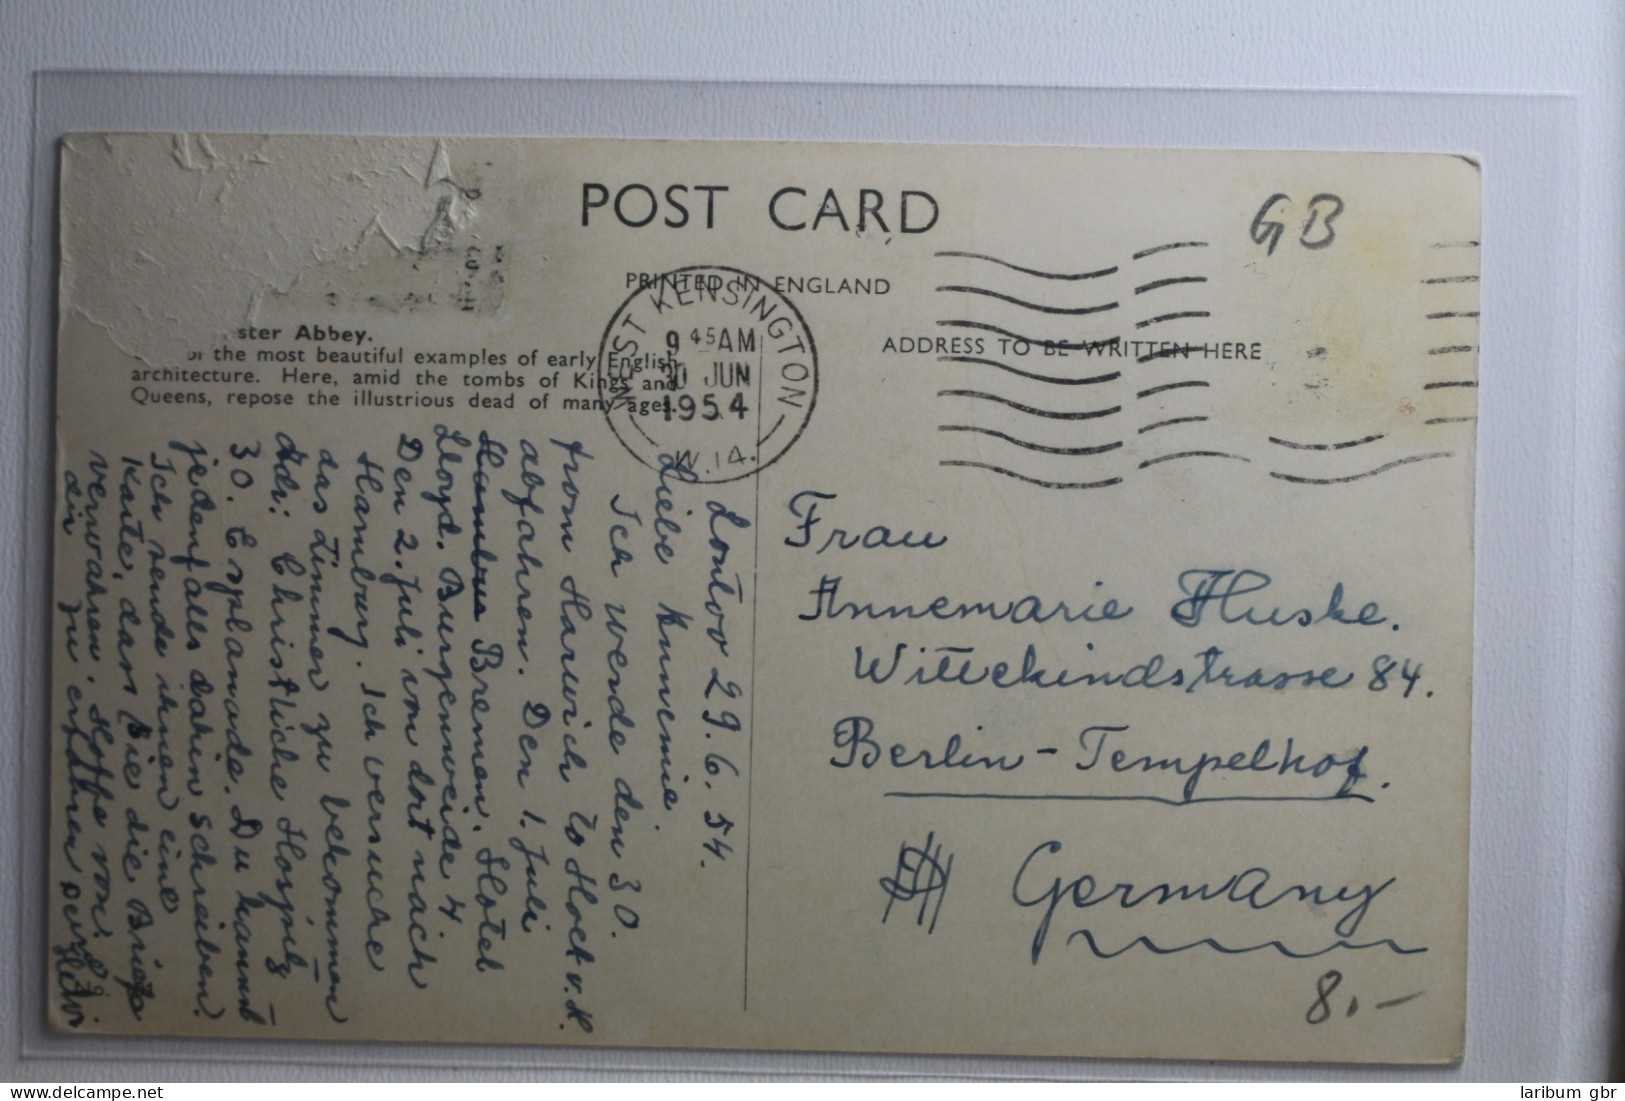 POST CARD
GB
PRINTED IN ENGLAND
WEST KENSINGTON
9 45 AM
30 JUN
1954
W.14.
ster Abbey.
of the most beautiful examples of early English
architecture. Here, amid the tombs of Kings and
Queens, repose the illustrious dead of many ages.
ADDRESS TO BE WRITTEN HERE
29.6.54.
Liebe
Ich werde den 30.
from Harwich to Hoek v. H.
abfahren. Den 1. Juli
Bremen. Hotel
Lloyd. Burgenweide 4
Den 2. Juli von dort nach
Hamburg. Ich versuche
das Zimmer zu bekommen
Adr: Christliche Hospiz
30. Esplanade. Du kannst
jedenfalls dahin schreiben.
Ich sende ihnen eine
Karte, dass Sie die Briefe
verwahren. Hoffe von
dir zu erfahren
Frau
Annemarie Huske.
Wittekindstrasse 84.
Berlin-Tempelhof.
Germany
8.-
laribum gbr
delcampe.net